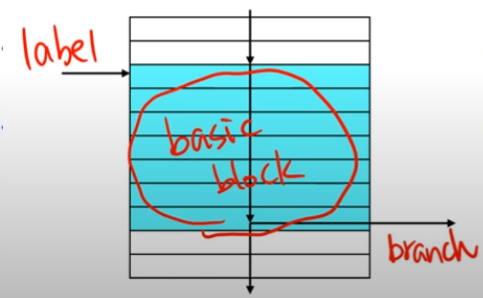 label
basic
block
branch